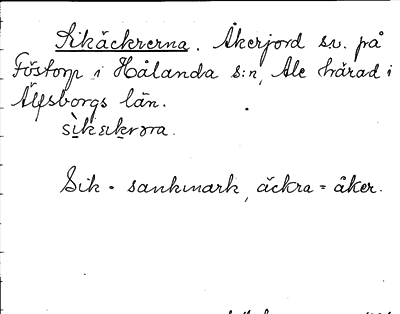 Sikäckrerna. Åkerjord sv. på
Föstorp i Hålanda s:n, Ale härad i
Älfsborgs län.
Sik = sankmark, äckra = åker.